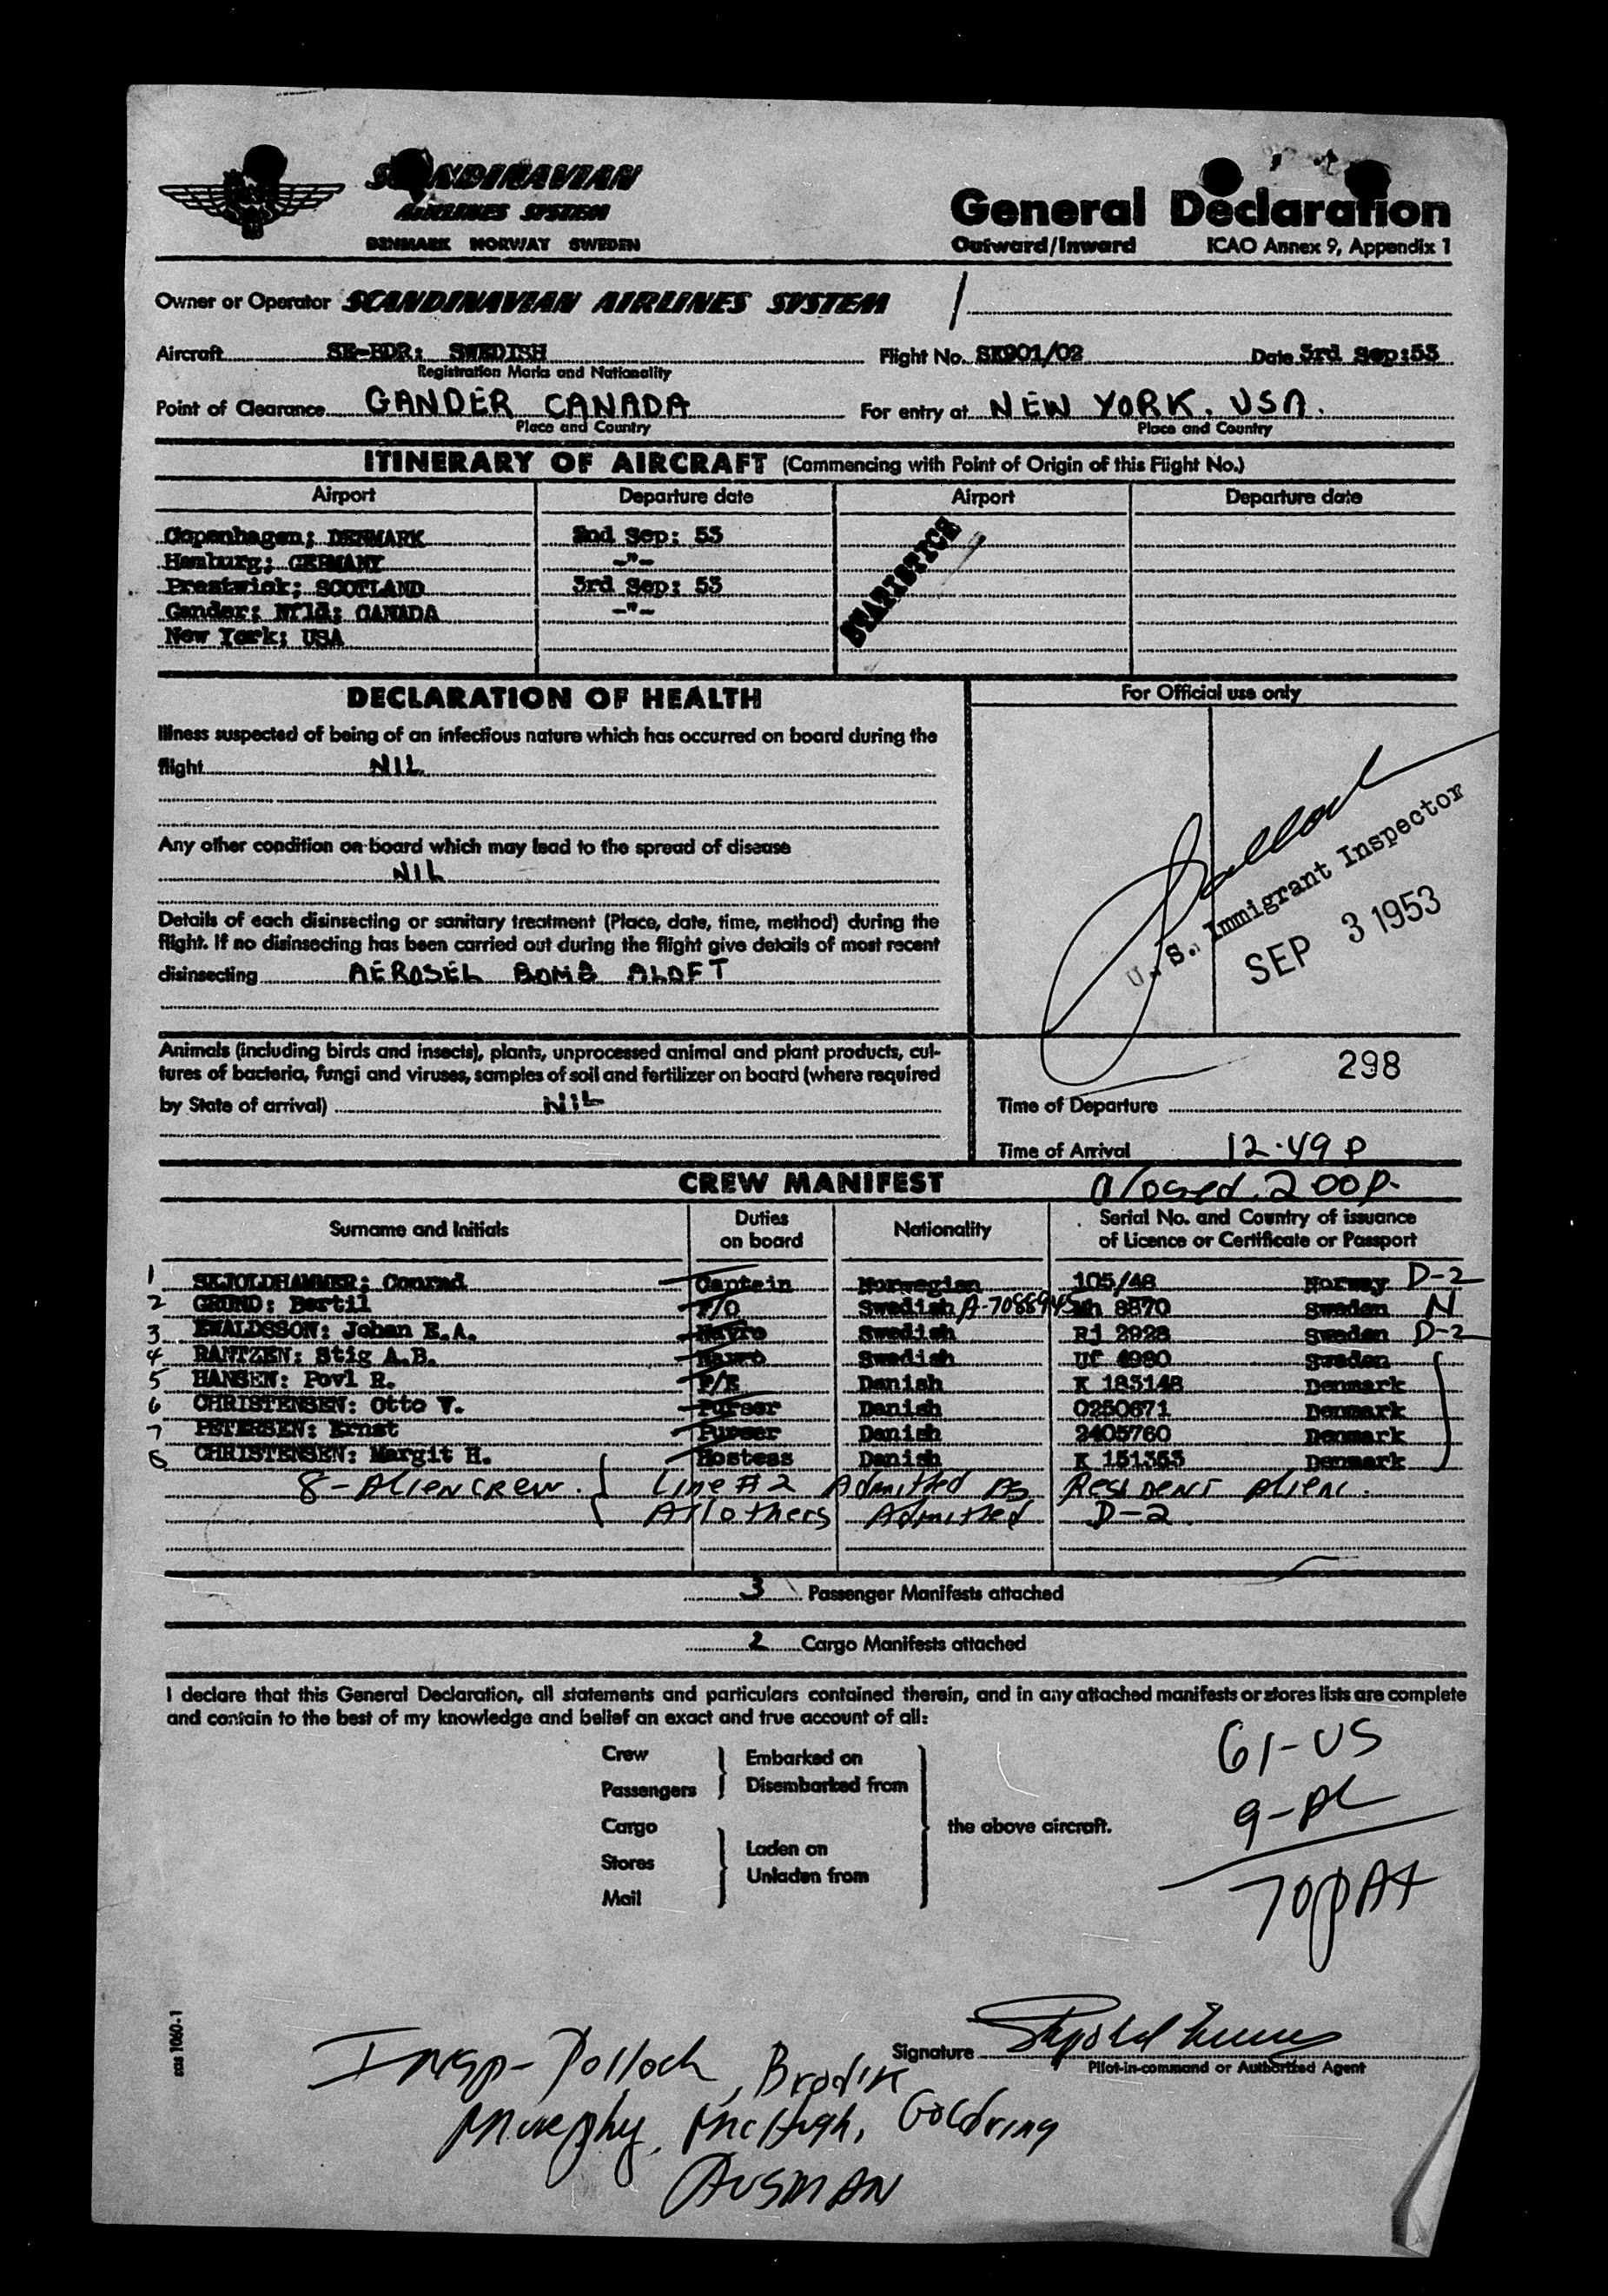 SCANDINAVIAN
AIRLINES SYSTEM
DENMARK NORWAY SWEDEN
General Declaration
Outward/Inward ICAO Annex 9, Appendix 1
Owner or Operator SCANDINAVIAN AIRLINES SYSTEM
Aircraft SE-BDR: SWEDISH Flight No. SK901/02 Date 3rd Sep:53
Registration Marks and Nationality
Point of Clearance GANDER CANADA For entry at NEW YORK. USA.
Place and Country Place and Country
ITINERARY OF AIRCRAFT (Commencing with Point of Origin of this Flight No.)
Airport Departure date Airport Departure date
Copenhagen; DENMARK 2nd Sep: 53
Hamburg; GERMANY -"-
Prestwick; SCOTLAND 3rd Sep: 53
Gander; Nfld; CANADA -"-
New York; USA
STATISTICS
DECLARATION OF HEALTH
For Official use only
Illness suspected of being of an infectious nature which has occurred on board during the
flight NIL
Any other condition on board which may lead to the spread of disease
NIL
Details of each disinsecting or sanitary treatment (Place, date, time, method) during the
flight. If no disinsecting has been carried out during the flight give details of most recent
disinsecting AEROSEL BOMB ALOFT
Pollock
U. S. Immigrant Inspector
SEP 3 1953
Animals (including birds and insects), plants, unprocessed animal and plant products, cul-
tures of bacteria, fungi and viruses, samples of soil and fertilizer on board (where required
by State of arrival) NIL
298
Time of Departure
Time of Arrival 12.49 P
CREW MANIFEST
Closed. 200P.
Surname and Initials Duties on board Nationality Serial No. and Country of issuance of Licence or Certificate or Passport
1 SKJOLDHAMMER: Conrad Captain Norwegian 105/48 Norway D-2
2 GRUND: Bertil F/O Swedish A-7088945 Mh 8870 Sweden N
3 EWALDSSON: Johan E.A. Navro Swedish Rj 2928 Sweden D-2
4 RANTZEN: Stig A.B. Navro Swedish Uf 4980 Sweden
5 HANSEN: Povl R. F/E Danish K 183148 Denmark
6 CHRISTENSEN: Otto V. Purser Danish 0250671 Denmark
7 PETERSEN: Ernst Purser Danish 2405760 Denmark
8 CHRISTENSEN: Margit H. Hostess Danish K 151353 Denmark
8-Alien crew. Line #2 Admitted as Resident Alien.
All others Admitted D-2.
3 Passenger Manifests attached
2 Cargo Manifests attached
I declare that this General Declaration, all statements and particulars contained therein, and in any attached manifests or stores lists are complete
and contain to the best of my knowledge and belief an exact and true account of all:
Crew Embarked on
Passengers Disembarked from
Cargo the above aircraft.
Stores Laden on
Mail Unladen from
61-US
9-AL
70 pax
sas 1060-1
Signature
Pilot-in-command or Authorized Agent
Insp- Pollock, Brodik
Murphy, McHugh, Goldring
Ausman